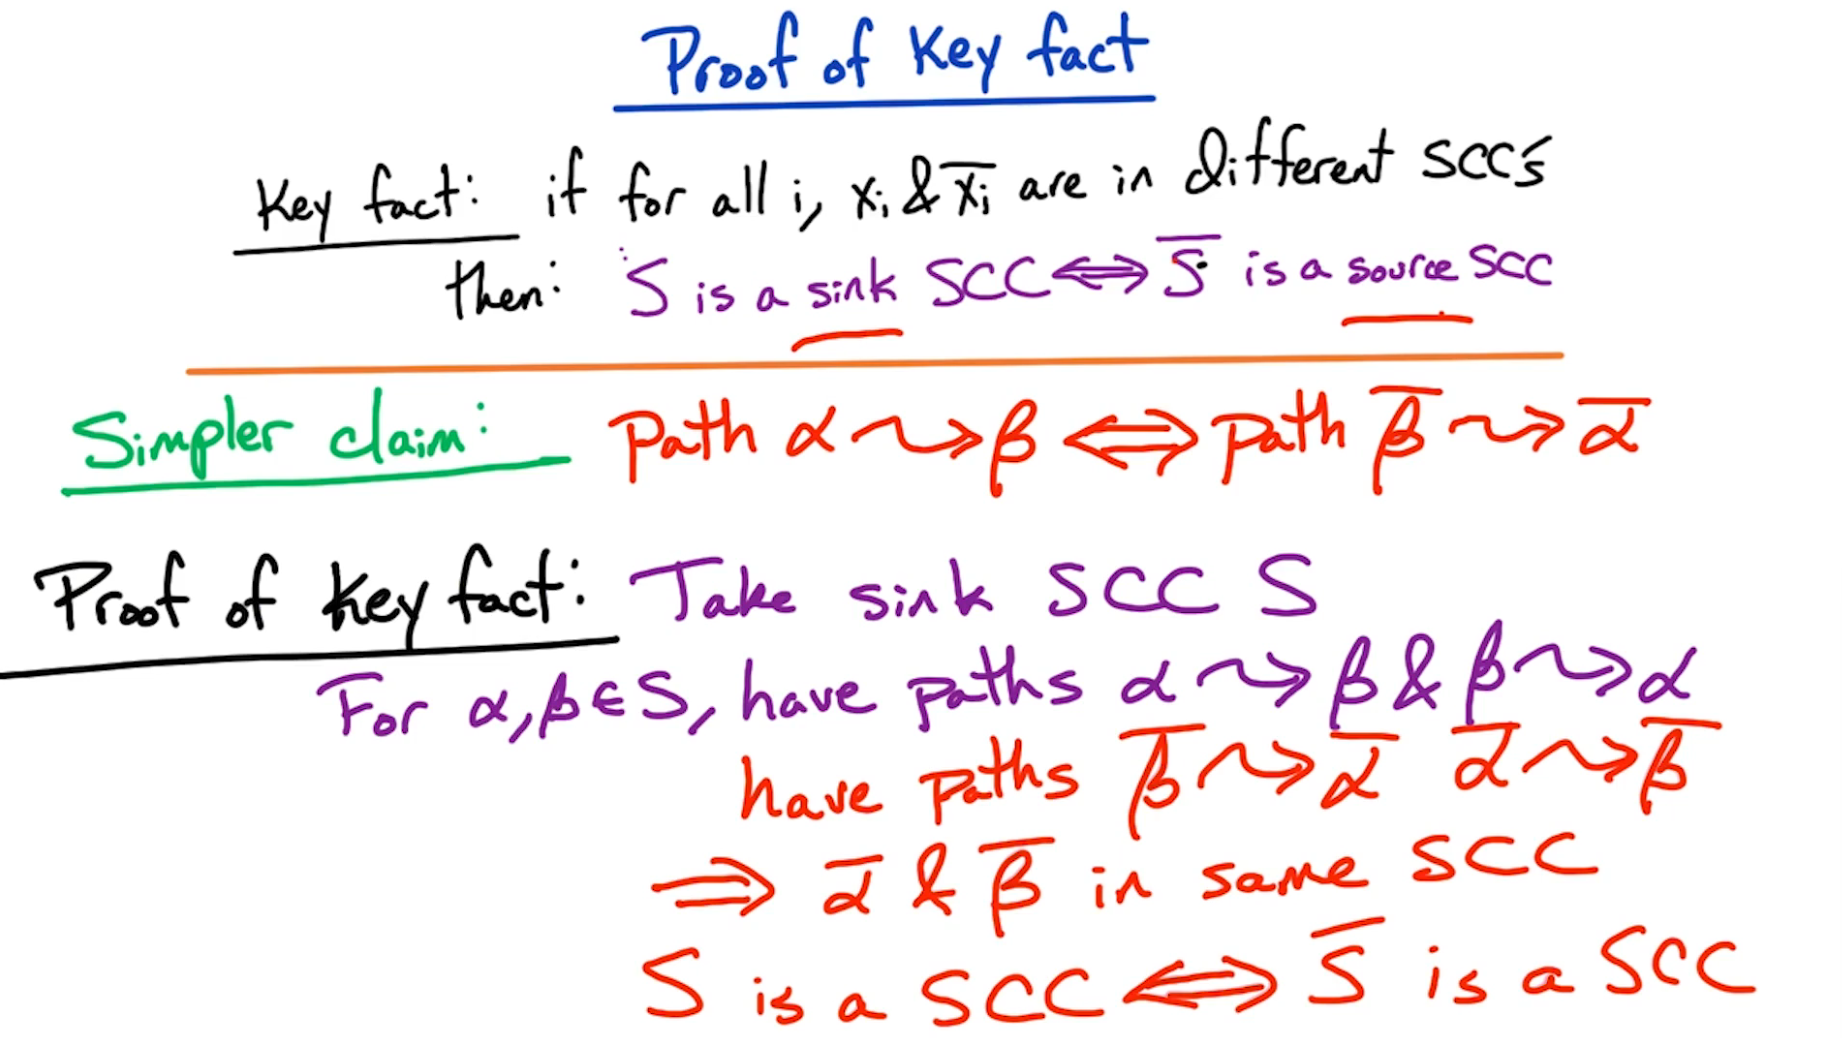 Proof of Key fact
Key fact: if for all i, xᵢ & x̅ᵢ are in different SCC's
then: S is a sink SCC ⟺ S̅ is a source SCC
Simpler claim: path α ⇝ β ⟺ path β̅ ⇝ α̅
Proof of Key fact: Take sink SCC S
For α, β ∈ S, have paths α ⇝ β & β ⇝ α
have paths β̅ ⇝ α̅ α̅ ⇝ β̅
⟹ α̅ & β̅ in same SCC
S is a SCC ⟺ S̅ is a SCC